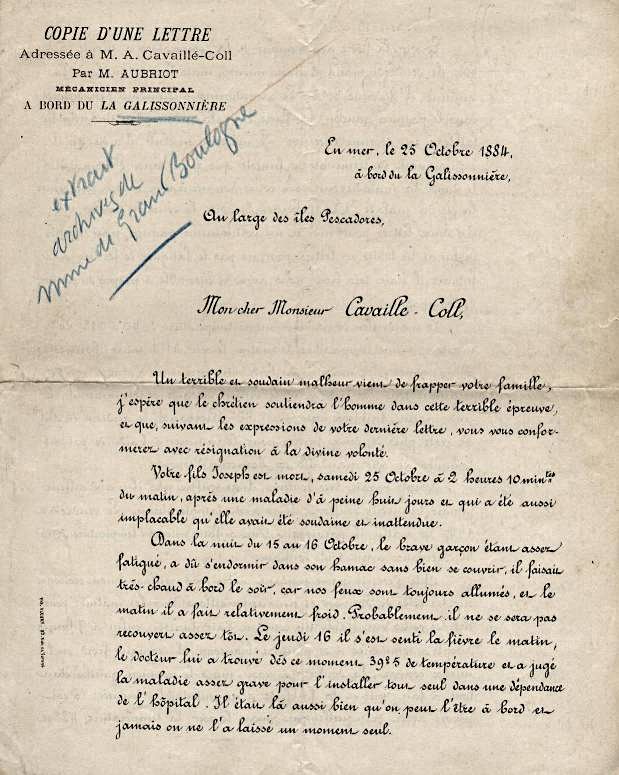 COPIE D'UNE LETTRE
Adressée à M. A. Cavaillé-Coll
Par M. AUBRIOT
MÉCANICIEN PRINCIPAL
A BORD DU LA GALISSONNIÈRE
extrait
archives de
Mme de Gram Boulogne
En mer, le 25 Octobre 1884,
à bord du la Galissonnière,
Au large des îles Pescadores,
Mon cher Monsieur Cavaille-Coll,
Un terrible et soudain malheur vient de frapper votre famille,
j'espère que le chrétien soutiendra l'homme dans cette terrible épreuve,
et que, suivant les expressions de votre dernière lettre, vous vous confor-
merez avec résignation à la divine volonté.
Votre fils Joseph est mort, samedi 25 Octobre à 2 heures 10 mintes
du matin, après une maladie d'à peine huit jours et qui a été aussi
implacable qu'elle avait été soudaine et inattendue.
Dans la nuit du 15 au 16 Octobre, le brave garçon étant assez
fatigué, a dû s'endormir dans son hamac sans bien se couvrir, il faisait
très-chaud à bord le soir, car nos feux sont toujours allumés, et le
matin il a fait relativement froid. Probablement il ne se sera pas
recouvert assez tôt. Le jeudi 16 il s'est senti la fièvre le matin,
le docteur lui a trouvé dès ce moment 39°5 de température et a jugé
la maladie assez grave pour l'installer tout seul dans une dépendance
de l'hôpital. Il était là aussi bien qu'on peut l'être à bord et
jamais on ne l'a laissé un moment seul.